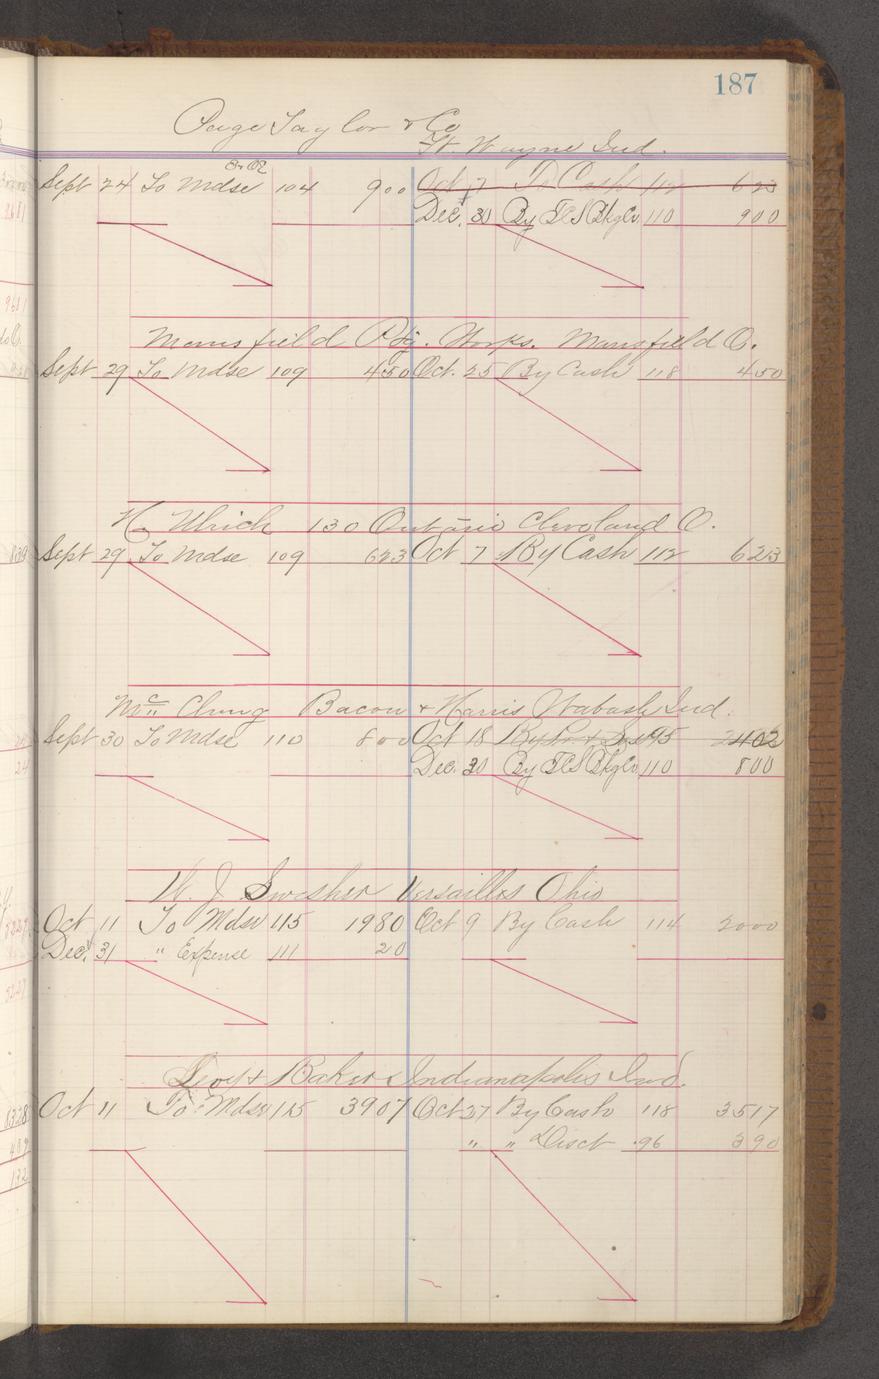 187
Page Taylor & Co
Ft. Wayne Ind.
Sept 24 To Mdse 104 900 Oct 7 To Cash 112 623
Dec. 30 By T.C.S. Bkg Co. 110 900
Mansfield Works. Mansfield O.
Sept 29 To Mdse 109 450 Oct. 25 By Cash 118 450
H Ulrich 130 Ontario Cleveland O.
Sept 29 To Mdse 109 623 Oct 7 By Cash 112 623
Mc Clung Bacon & Harris Wabash Ind.
Sept 30 To Mdse 110 800 Oct 18 By 95 2402
Dec. 30 By T.C.S. Bkg Co. 110 800
W. J. Swisher Versailles Ohio
Oct 11 To Mdse 115 1980 Oct 9 By Cash 114 2000
Dec. 31 " Expense 111 20
Levy & Baker Indianapolis Ind.
Oct 11 To Mdse 115 3907 Oct 27 By Cash 118 3517
" " Disct 96 390